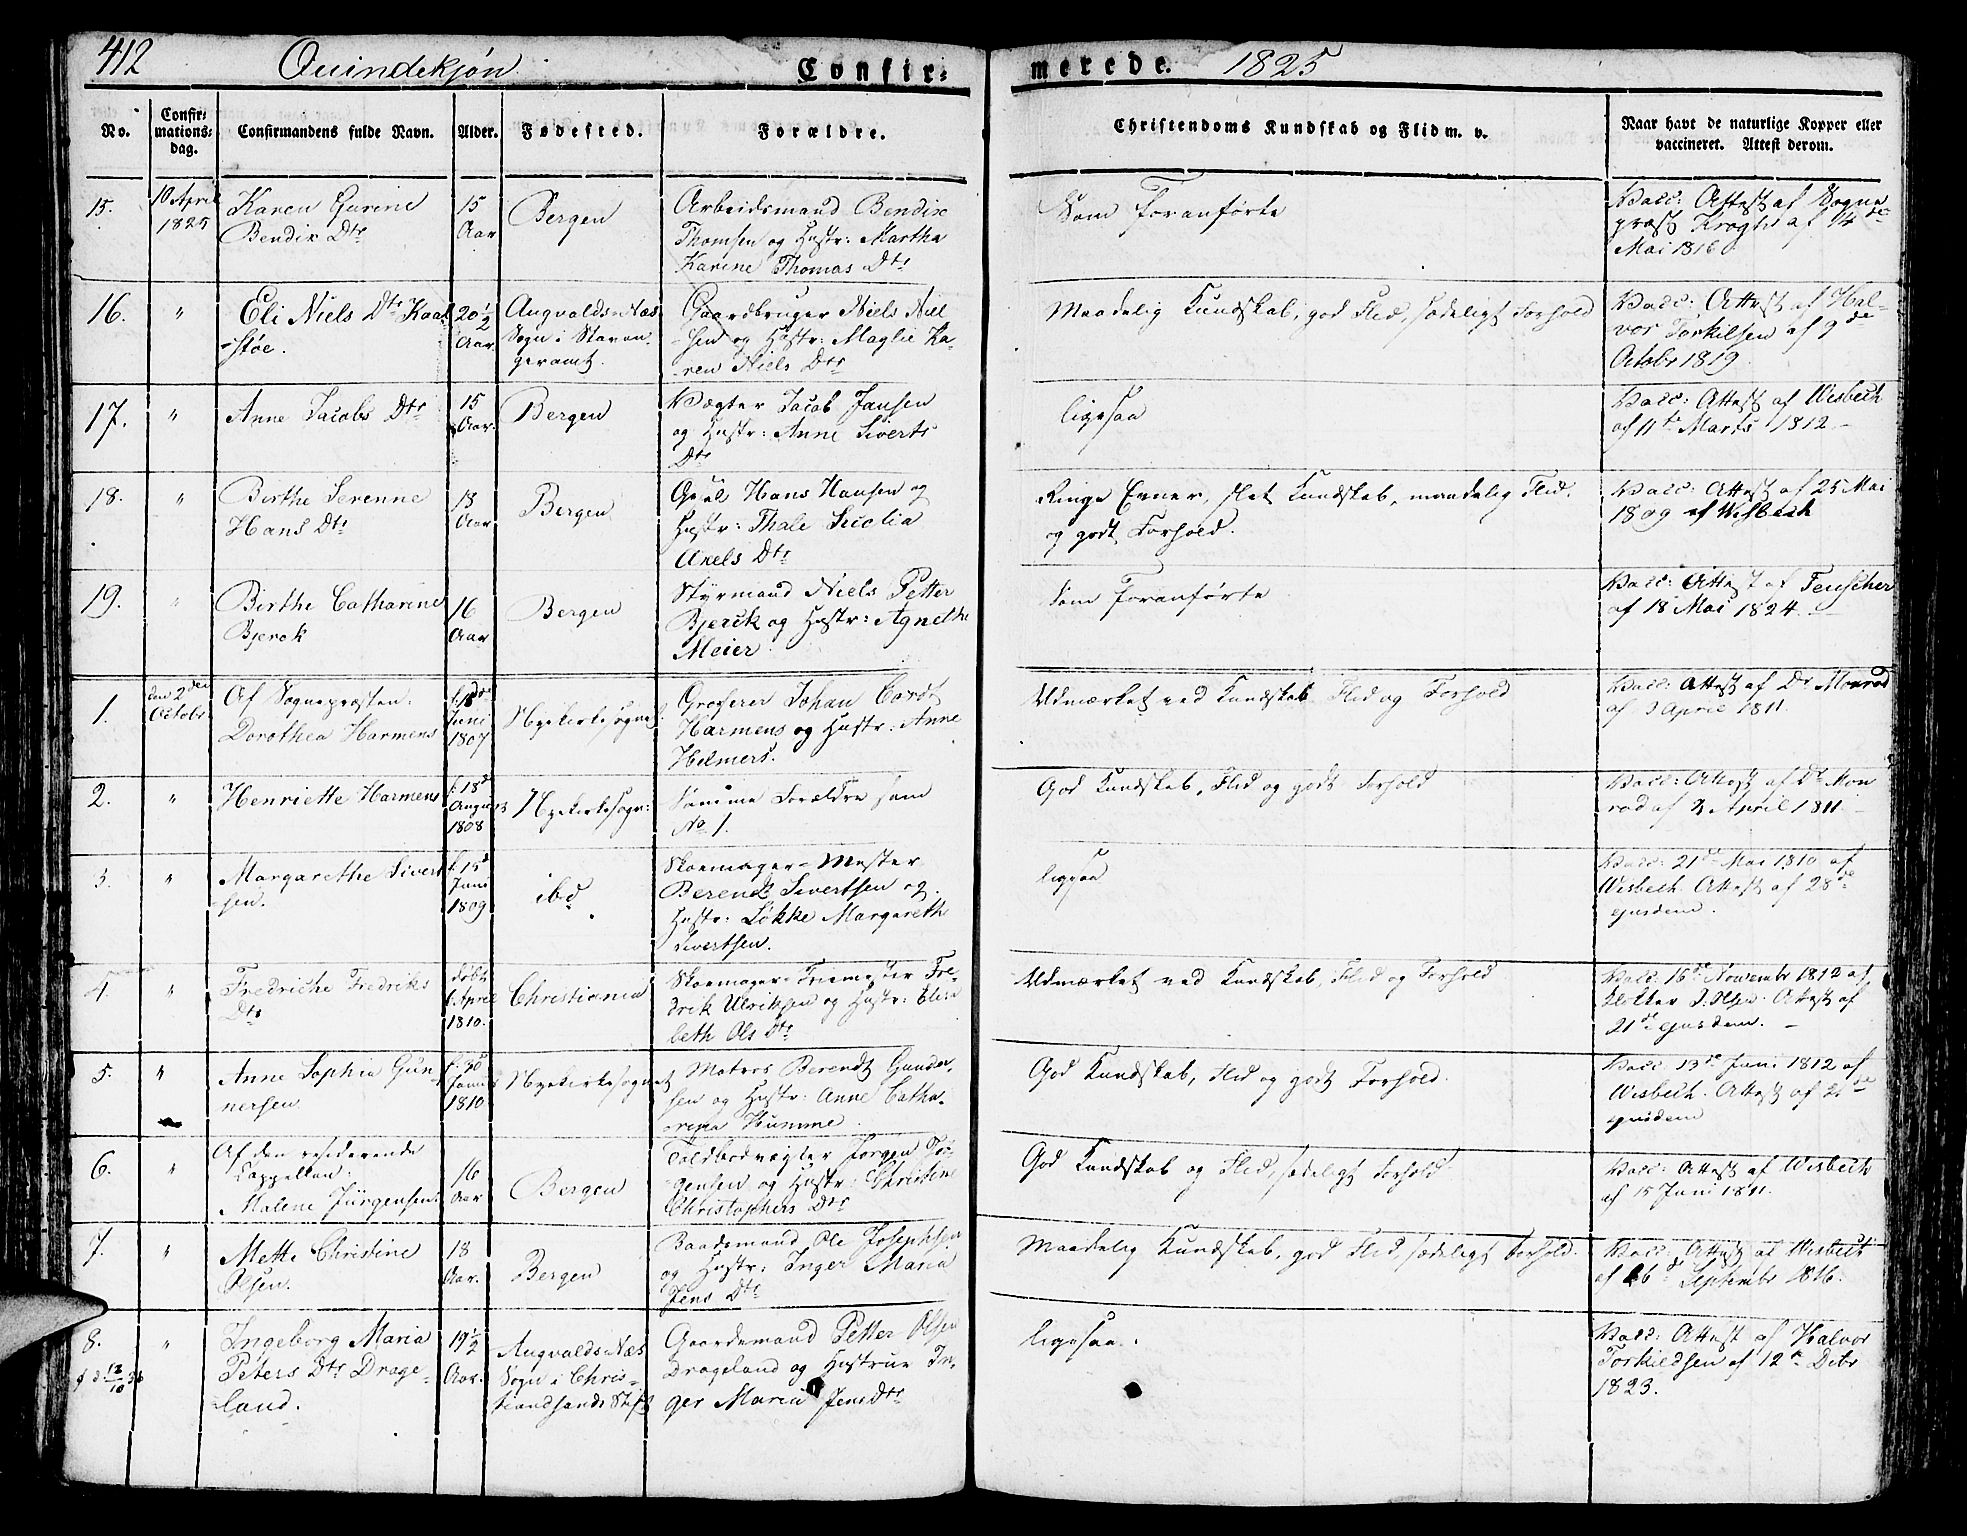 412 Quindekjøn Confir= merede. 1825
No.
Confir=
mations=
dag.
Confirmandens fulde Navn.
Alder.
Fødested.
Forældre.
Christendoms Kundskab og Flid m. v.
Naar havt de naturlige Kopper eller
vaccineret. Attest derom.
15.
10 April
1825
Karen Gurine
Bendix Dtr
15
Aar
Bergen
Arbeidsmand Bendix
Thomsen og Hustr: Martha
Karine Thomas Dtr
Som foranførte
Vacc: Attest af Sogne
præst Krogh af 14de
Mai 1816
16.
"
Eli Niels Dtr Kaal
støe.
20 1/2
Aar
Augvalds Næs
Sogn i Stavan
geramt.
Gaardbruger Niels Niel
sen og Hustr: Maglie Ka-
ren Niels Dtr
Maadelig Kundskab, god Flid, sædeligt Forhold
Vacc: Attest af Hal-
vor Torkilsen af 9de
Octobr 1819
17.
"
Anne Jacobs Dtr
15
Aar.
Bergen
Vægter Jacob Jansen
og Hustr: Anne Siverts
Dtr
ligesaa
Vacc: Attest af Wisbech
af 11te Marts 1812
18.
"
Birthe Serenne
Hans Dtr
18
Aar
Bergen
Hans Hansen og
Hustr: Thale
Axels Dtr
Ringe Evner, slet Kundskab, maadelig Flid.
og godt Forhold.
Vacc: Attest af 25 Mai
1809 af Wisbech
19.
"
Birthe Catharine
Bjerck
16
Aar
Bergen
Styrmand Niels Petter
Bjerck og Hustr: Agnethe
Meier
Som foranførte
Vacc: Attest af
af 18 Mai 1824
1.
den 2den
Octobr
Af Sognepræsten:
Dorothea Harmens
Juni
1807
Nyekirkesognet
Johan Cordt
Harmens og Hustr: Anne
Helmers.
Udmærket ved Kundskab Flid og Forhold
Vacc: Attest af Dr Monrad
af 3 April 1811
2.
"
Henriette Harmens
f. 18d
August
1808
Nyekirkesogn:
Samme Forældre som
No 1.
God Kundskab, Flid og godt Forhold
Vacc: Attest af Dr Mon
rad af 3 April 1811
3.
"
Margarethe Sivert
sen.
f. 15d
Juni
1809
ibd
Skoemager-Mester
Berendt Sivertsen og
Hustr: Løkke Margareth
Sivertsen.
ligesaa
Vacc: 21de Mai 1810 af
Wisbech. Attest af 28de
ejusdem.
4.
"
Fredriche Fredriks
Dtr
døbt
6 April
1810.
Christiania
Skoemager-Friemester Fre-
drik Ulriksen og Hustr: Elisa
beth Ols Dtr
Udmærket ved Kundskab, Flid og Forhold
Vacc: 16de Novembr 1812 af
Attest af
21de ejusdem.
5.
"
Anne Sophia Gun
nersen
f. 30
1810
Nyekirkesognet
Matros Berendt Gunder
sen og Hustr: Anne Catha-
rina Humme
God Kundskab, Flid og godt Forhold.
Vacc 13de Juni 1812 af
Wisbech. Attest af 21de
ejusdem
6.
"
Af den residerende
Cappellan:
Malene Jürgensen
16
Aar
Bergen
Toldbodvægter Jørgen Jør
gensen og Hustr: Christine
Christophers Dtr
God Kundskab og Flid, sædeligt Forhold
Vacc: Attest af Wisbech
af 15 Juni 1811.
7.
"
Mette Christine
Olsen.
18
Aar.
Bergen
Baadsmand Ole Josephsen
og Hustr: Inger Maria
Jens Dtr
Maadelig Kundskab, god Flid, sædeligt Forhold.
Vacc: Attest af Wisbech
af 26de Septembr 1816.
8.
"
Ingeborg Maria
Peters Dtr Drage-
land.
19 1/2
Aar.
Augvalds Næs
Sogn i Chris-
tiandsands Stift
Gaardemand Petter Olsen
Drageland og Hustrue In
ger Maria Jens Dtr
ligesaa.
Vacc: Attest af Halvor
Torkildsen af 12te Decbr
1823.